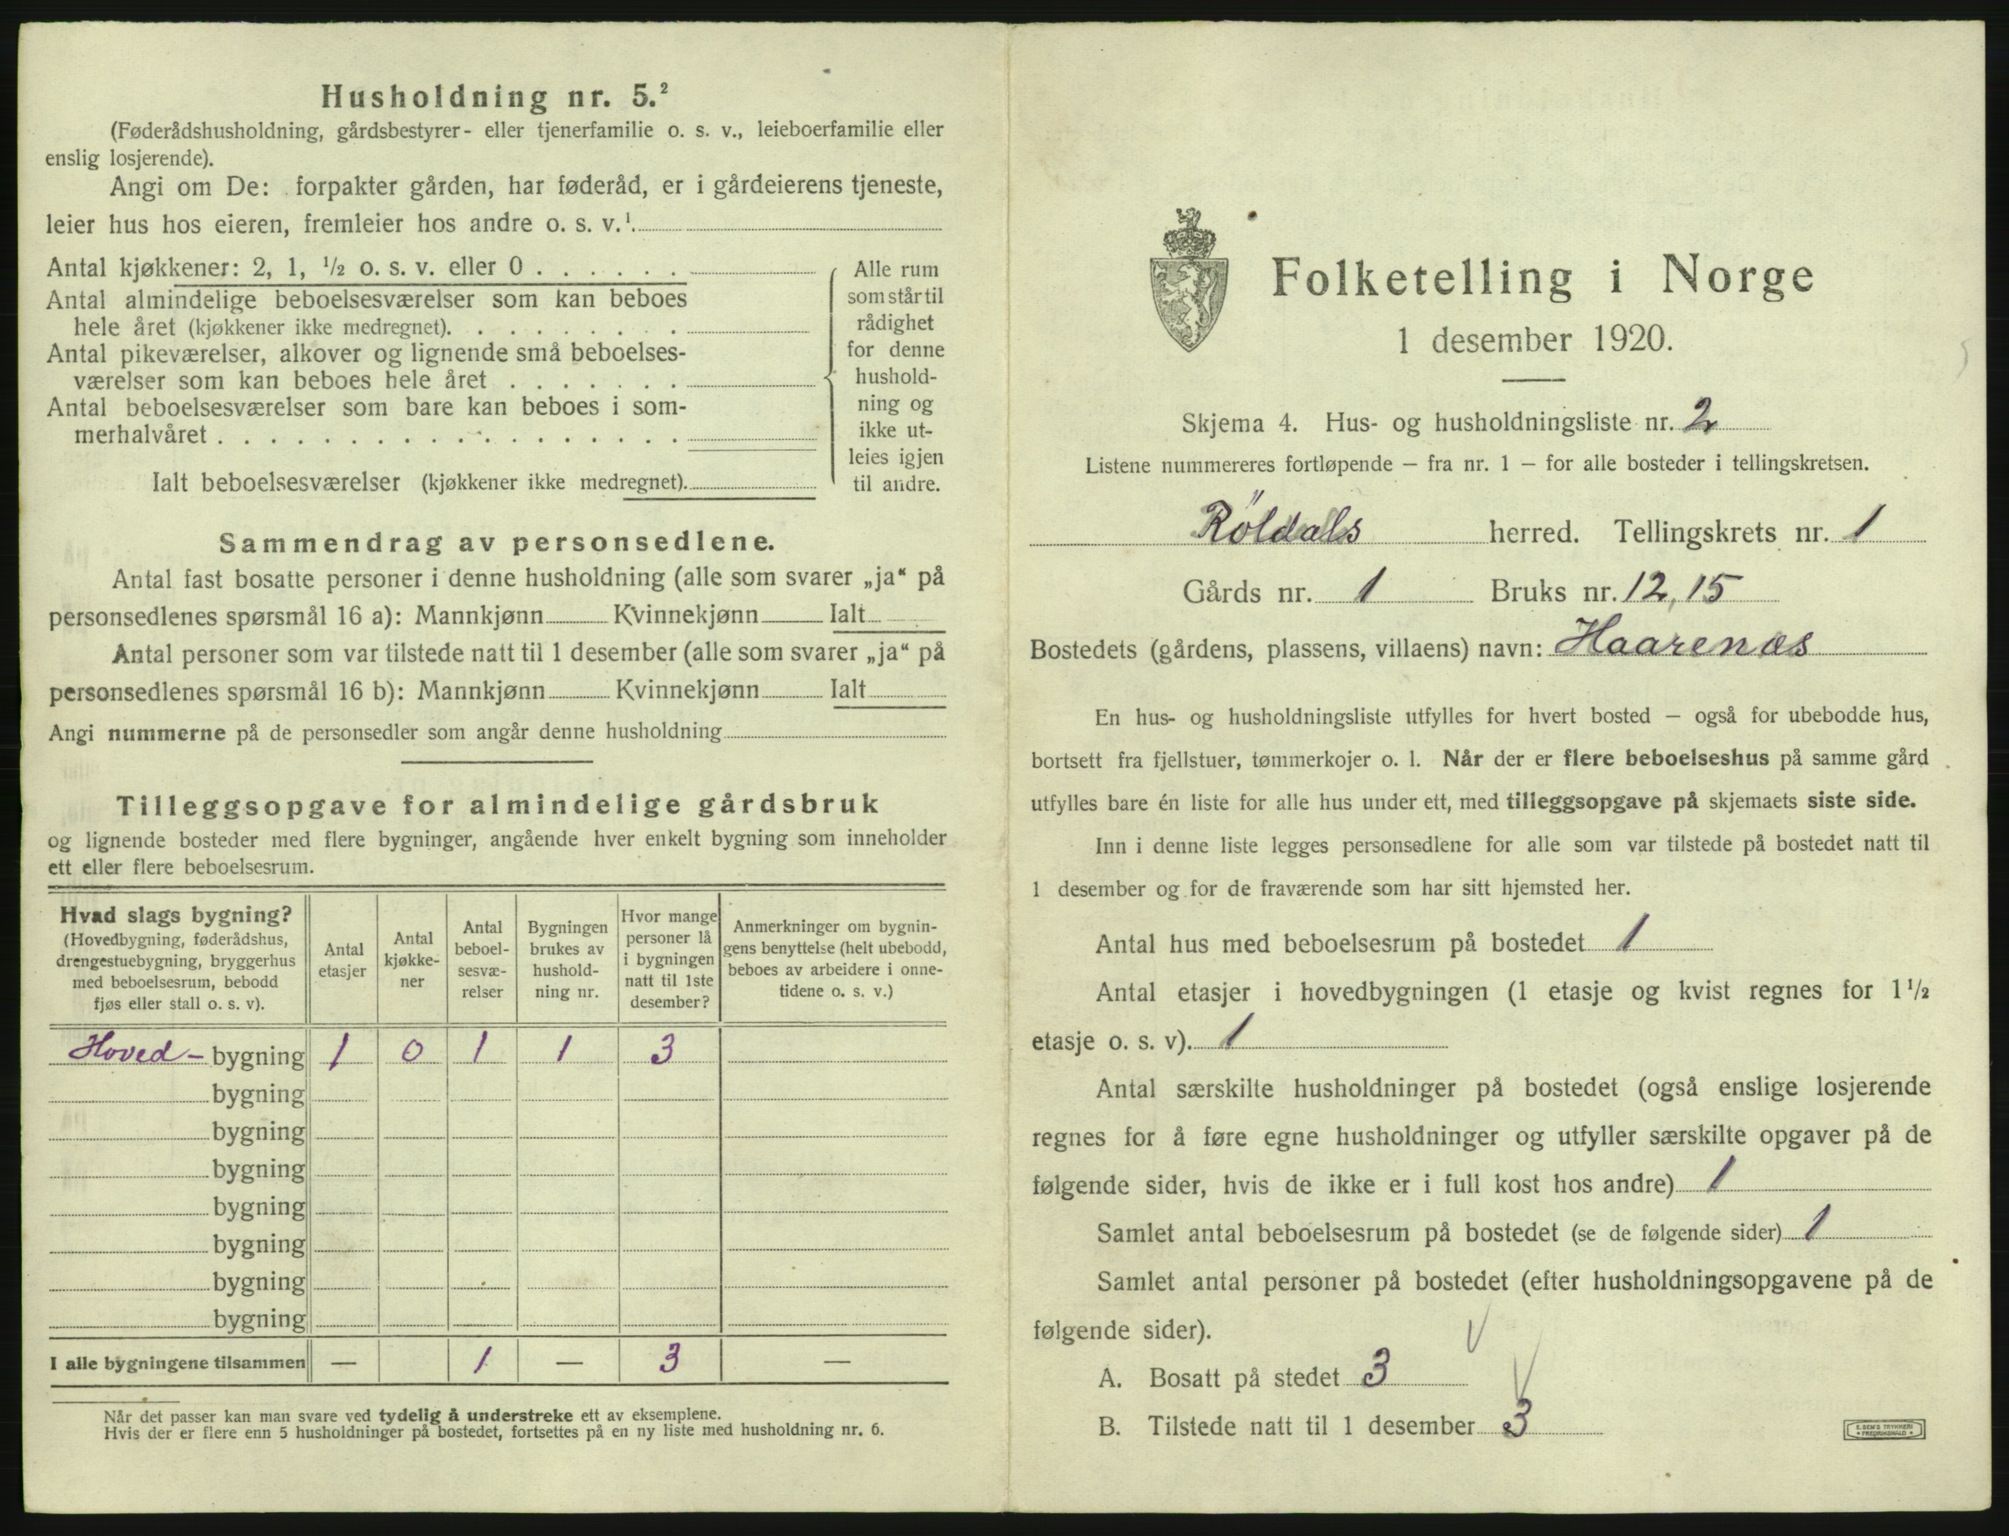 Husholdning nr. 5.²
(Føderådshusholdning, gårdsbestyrer- eller tjenerfamilie o. s. v., leieboerfamilie eller
enslig losjerende).
Angi om De: forpakter gården, har føderåd, er i gårdeierens tjeneste,
leier hus hos eieren, fremleier hos andre o. s. v.¹
Antal kjøkkener: 2, 1, ½ o. s. v. eller 0 . . . . . .
Antal almindelige beboelsesværelser som kan beboes
hele året (kjøkkener ikke medregnet). . . . . . . . .
Antal pikeværelser, alkover og lignende små beboelses-
værelser som kan beboes hele året . . . . . . .
Antal beboelsesværelser som bare kan beboes i som-
merhalvåret . . . . . . . . . . . . . . . . . .
Ialt beboelsesværelser (kjøkkener ikke medregnet).
Alle rum
som står til
rådighet
for denne
hushold-
ning og
ikke ut-
leies igjen
til andre.
Sammendrag av personsedlene.
Antal fast bosatte personer i denne husholdning (alle som svarer „ja“ på
personsedlenes spørsmål 16 a): Mannkjønn Kvinnekjønn Ialt
Antal personer som var tilstede natt til 1 desember (alle som svarer „ja“ på
personsedlenes spørsmål 16 b): Mannkjønn Kvinnekjønn Ialt
Angi nummerne på de personsedler som angår denne husholdning
Tilleggsopgave for almindelige gårdsbruk
og lignende bosteder med flere bygninger, angående hver enkelt bygning som inneholder
ett eller flere beboelsesrum.
Hvad slags bygning?
(Hovedbygning, føderådshus,
drengestuebygning, bryggerhus
med beboelsesrum, bebodd
fjøs eller stall o. s. v).
Antal
etasjer
Antal
kjøkke-
ner
Antal
beboel-
sesvæ-
relser
Bygningen
brukes av
hushold-
ning nr.
Hvor mange
personer lå
i bygningen
natt til 1ste
desember?
Anmerkninger om bygnin-
gens benyttelse (helt ubebodd,
beboes av arbeidere i onne-
tidene o. s. v.)
Hoved- bygning 1 0 1 1 3
bygning
bygning
bygning
bygning
bygning
bygning
bygning
I alle bygningene tilsammen — 1 — 3 —
Når det passer kan man svare ved tydelig å understreke ett av eksemplene.
Hvis der er flere enn 5 husholdninger på bostedet, fortsettes på en ny liste med husholdning nr. 6.
Folketelling i Norge
1 desember 1920.
Skjema 4. Hus- og husholdningsliste nr. 2
Listene nummereres fortløpende – fra nr. 1 – for alle bosteder i tellingskretsen.
Röldals herred. Tellingskrets nr. 1
Gårds nr. 1 Bruks nr. 12, 15
Bostedets (gårdens, plassens, villaens) navn: Haarenæs
En hus- og husholdningsliste utfylles for hvert bosted – også for ubebodde hus,
bortsett fra fjellstuer, tømmerkojer o. l. Når der er flere beboelseshus på samme gård
utfylles bare én liste for alle hus under ett, med tilleggsopgave på skjemaets siste side.
Inn i denne liste legges personsedlene for alle som var tilstede på bostedet natt til
1 desember og for de fraværende som har sitt hjemsted her.
Antal hus med beboelsesrum på bostedet 1
Antal etasjer i hovedbygningen (1 etasje og kvist regnes for 1½
etasje o. s. v). 1
Antal særskilte husholdninger på bostedet (også enslige losjerende
regnes for å føre egne husholdninger og utfyller særskilte opgaver på de
følgende sider, hvis de ikke er i full kost hos andre) 1
Samlet antal beboelsesrum på bostedet (se de følgende sider) 1
Samlet antal personer på bostedet (efter husholdningsopgavene på de
følgende sider).
A. Bosatt på stedet 3
B. Tilstede natt til 1 desember 3
E. SEM'S TRYKKERI
FREDRIKSHALD